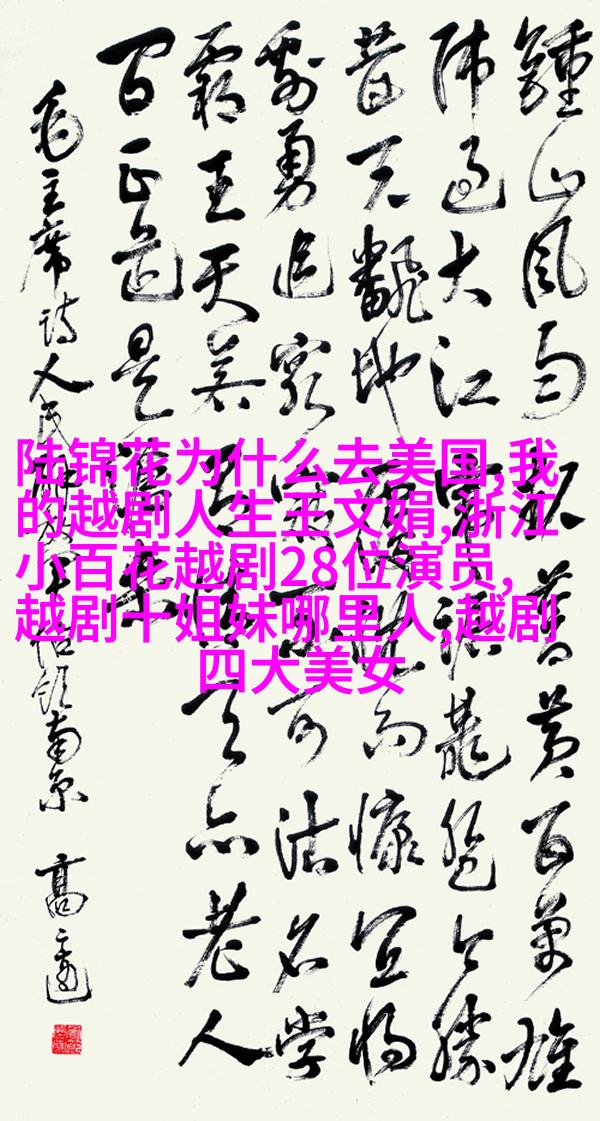 鍾山風雨起蒼黄百萬雄
师过大江虎踞龍盤今勝
昔天翻地覆慨而慷宜将
剩勇追窮寇不可沽名学
霸王天若有情天亦老人
间正道是滄桑
毛主席诗人民解放军占领南京 高
陆锦花为什么去美国,我
的越剧人生王文娟,浙江
小百花越剧28位演员,
越剧十姐妹哪里人,越剧
四大美女